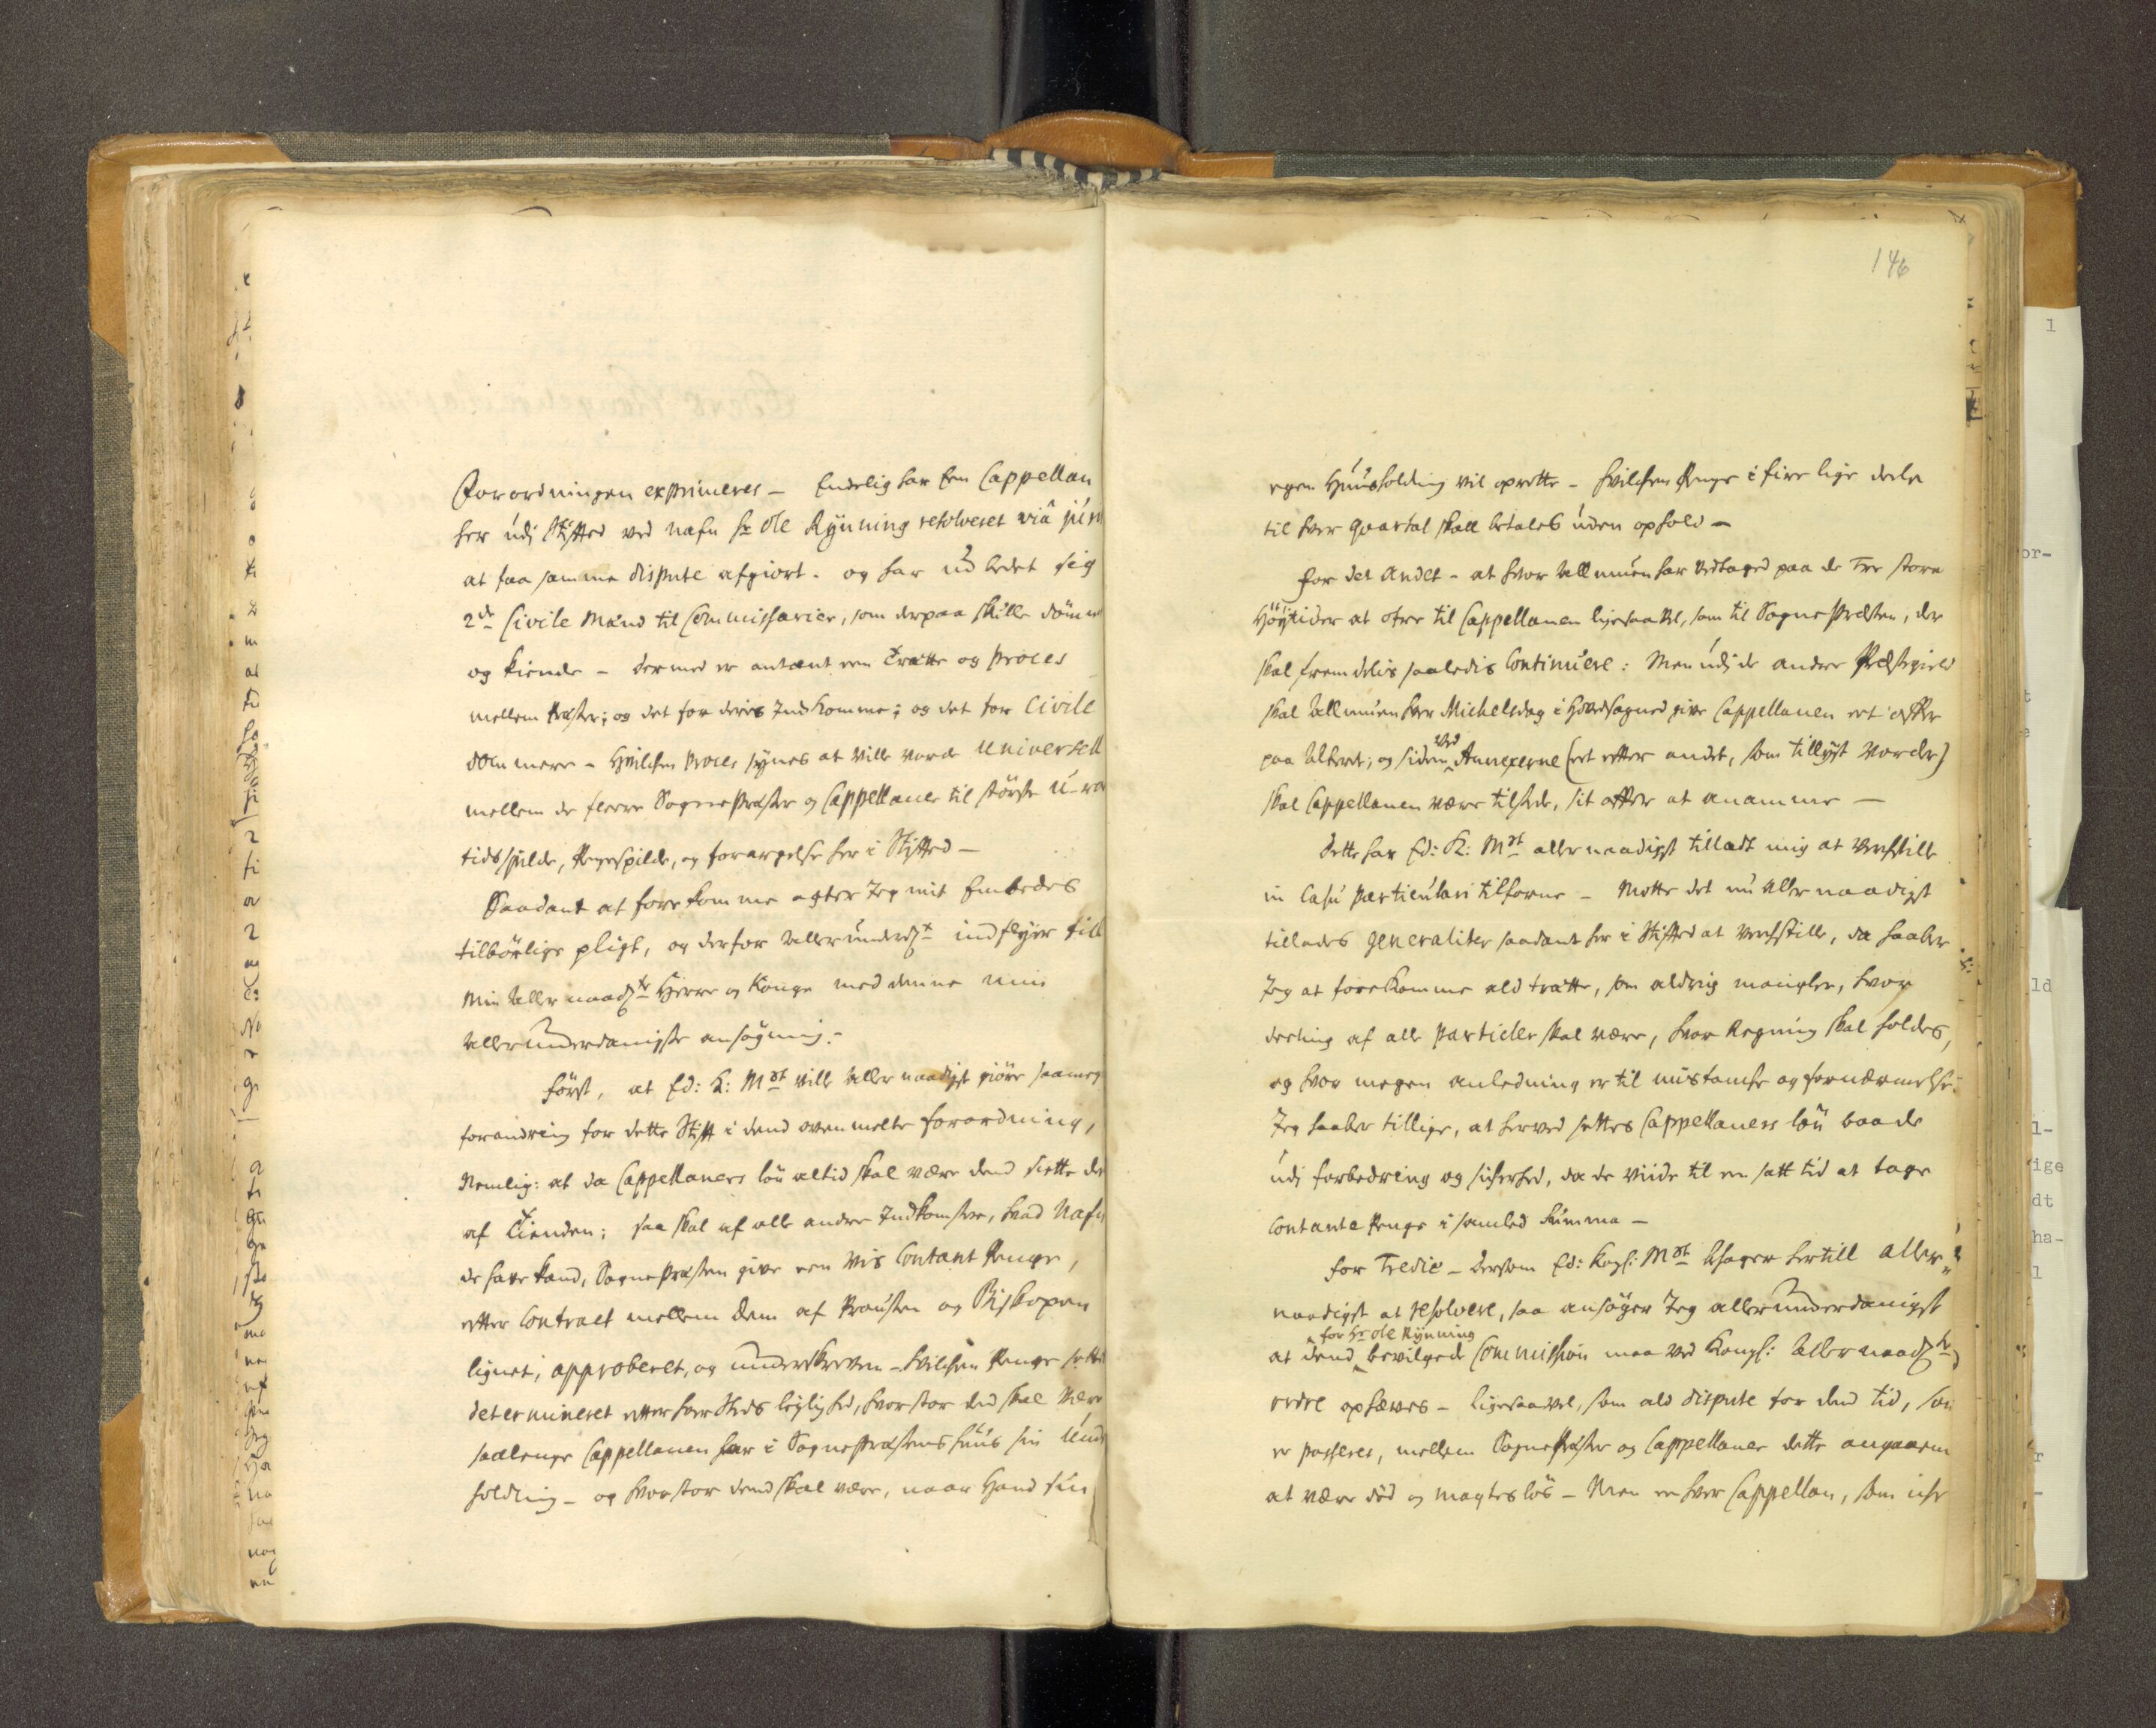 Forordningen exprimeres – Endelig har Een Cappellan
her udj Stifftet ved nafn Hr Ole Rÿnning resolveret viâ juris
at faa samme dispute afgiort. og har udbedet sig
2de Civile Mænd til Commissarier, som derpaa skulle dömme
og kiende – dermed er antænt een Trætte og Proces
mellem Præster; og det for deris Indkomme; og det for Civile
dommere – Hvilchen Proces sÿnes at ville vorde Universell
mellem de fleere Sognepræster og Cappellaner til störste u-ro
tidsspilde, Pengespilde, og forargelse her i Stifftet –
Saadant at forekomme agter Jeg mit Embedes
tilbörlige pligt, og derfor allerunderdst indflÿer till
Min aller naadste Herre og Konge med denne min
allerunderdanigste ansögning:
Först, at Ed: K: Mayt ville aller naadigst giöre saameg
forandring for dette Stifft i dend ovenmelte forordning,
Nemlig: at da Cappellaners lön altid skal være dend siette de
af Tienden; saa skal af alle andre Indkomster, hvad Nafn
de have kand, Sognepræsten give een vis Contant Penge,
effter Contract mellem dem af Provsten og Biskopen
lignet, approberet, og underskreven – hvilchen Penge sættes
determineret effter hver Steds leylighed, hvor stor den skal være
saalenge Cappellanen har i Sognepræstens huus sin Under
holdning – og hvor stor dend skal være, naar Hand sin
146
egen Huusholding vil oprette – hvilchen Penge i fire lige deele
til hver Qvartal skall betales uden ophold –
For det Andet – at hvor Allmuen har vedtaged paa de Tre store
Höÿtider at ofre til Cappellanen ligesaavel, som til Sognepræsten, der
skal fremdelis saaledis Continuere: Men udj de andre Præstegield
skal Allmuen hver Michelsdag i Hovedsognet give Cappellanen eet offer
paa Alteret; og siden ved Annexerne (eet effter andet, som tillÿst vorder)
skal Cappellanen være tilstede, sit offer at anamme –
Dette har Ed: K: Mayt aller naadigst tilladt mig at verkstille
in Casu particulari tilforne – Motte det nu aller naadigst
tillades generaliter saadant her i Stifftet at verkstille, da haaber
Jeg at forekomme ald trætte, som aldrig mangler, hvor
deeling af alle particler skal være, hvor Regning skal holdes,
og hvor megen anledning er til mistanche og fornærmelse.
Jeg haaber tillige, at herved sættes Cappellaners lön baade
udj forbedring og sicherhed, da de viide til en satt tid at tage
Contante Penge i samled Summa –
For Tredie – dersom Ed: Kongl: Mayt behager hertill aller
naadigst at resolvere, saa ansöger Jeg allerunderdanigst
at dend for Hr Ole Rÿnning bevilgede Commission maa ved Kongl: Aller naadste
ordre ophæves – ligesaavel, som ald dispute for dend tid, som
er passeret, mellem Sognepræster og Cappellaner dette angaaende
at være död og magteslös – Men een hver Cappellan, som iche